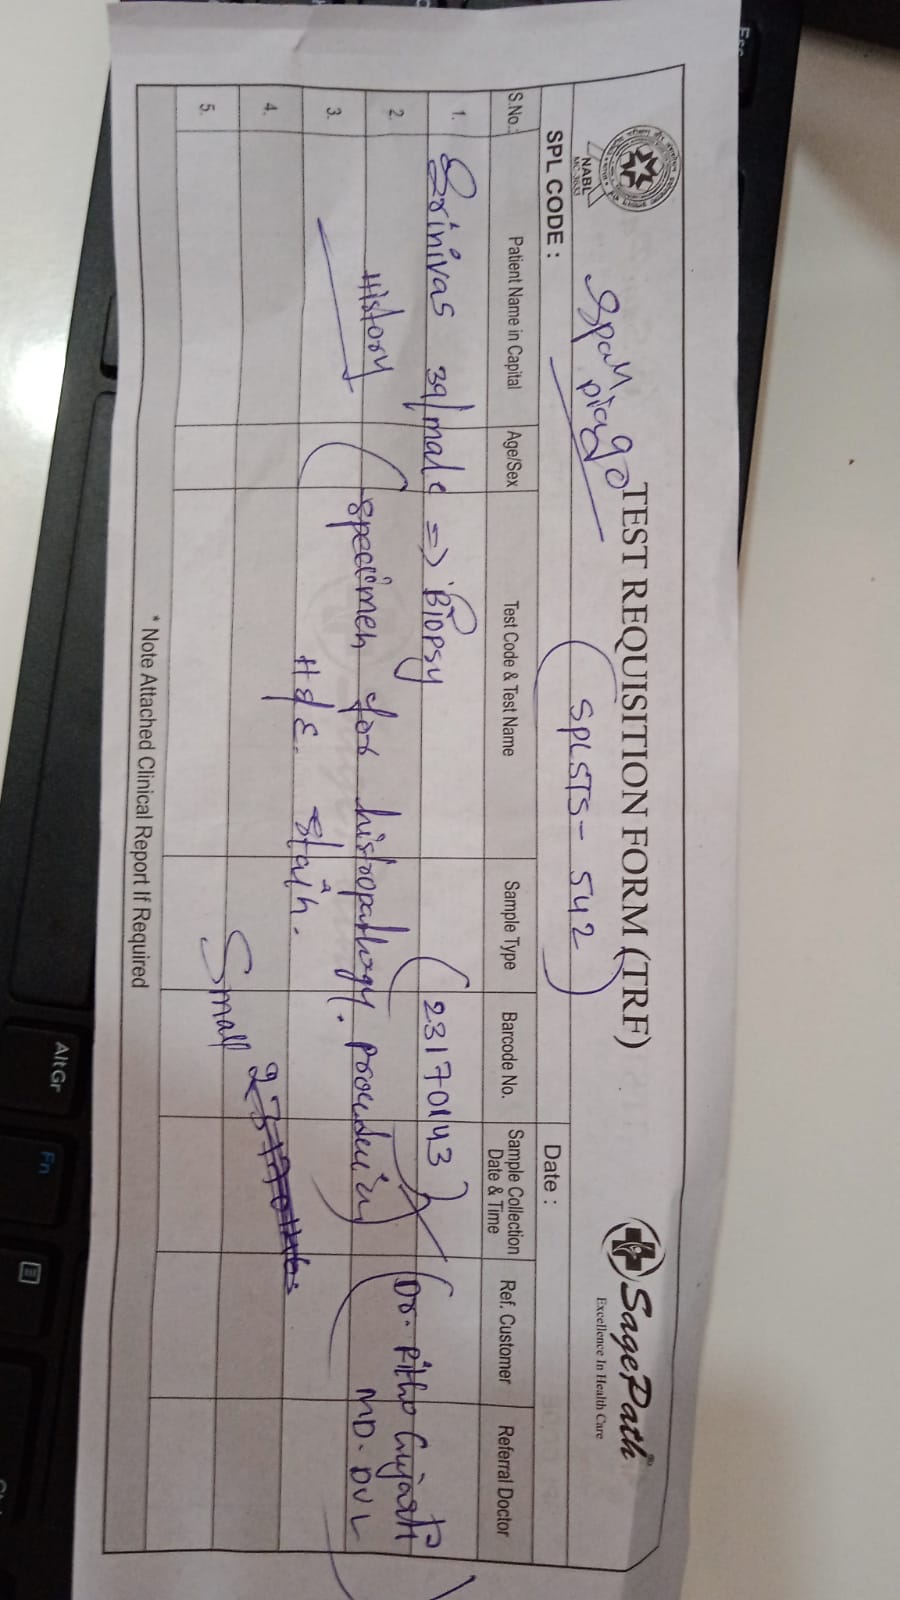 TEST REQUISITION FORM (TRF)
NABL
MC-3633
SagePath®
Excellence In Health Care
Span
SPL CODE :
SPLSTS - 542
Date :
S.No.:
Patient Name in Capital
Age/Sex
Test Code & Test Name
Sample Type
Barcode No.
Sample Collection
Date & Time
Ref. Customer
Referral Doctor
1. Srinivas 39/male => Biopsy (23170143)
Dr.
2. History (specimen for histopathogy.
MD. DVL
3. H & E. Stain.
4.
5. Small
* Note Attached Clinical Report If Required
Esc
Alt Gr
Fn